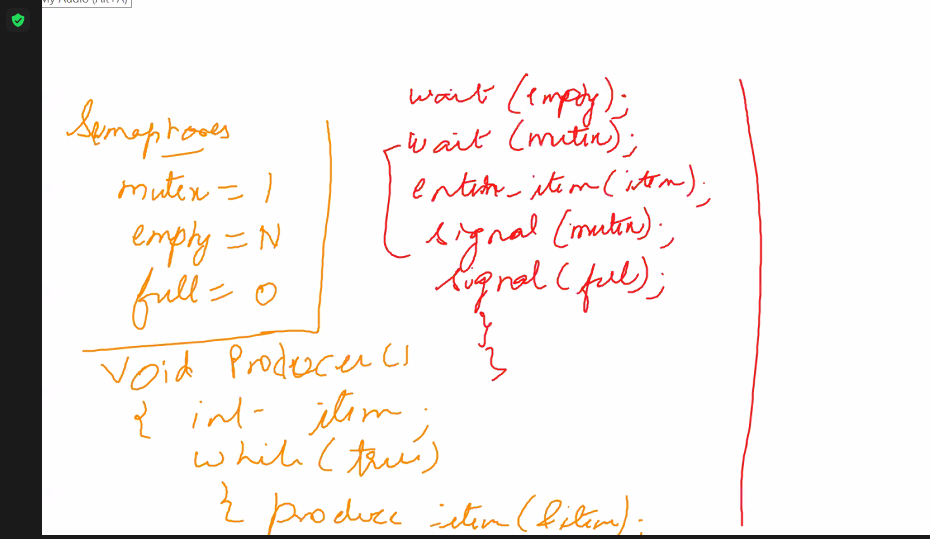 My Audio (Alt+A)
Semaphores
mutex = 1
empty = N
full = 0
void Producer()
{ int item;
while (true)
{ produce_item(&item);
wait (empty);
wait (mutex);
enter_item(item);
signal (mutex);
signal (full);
}
}